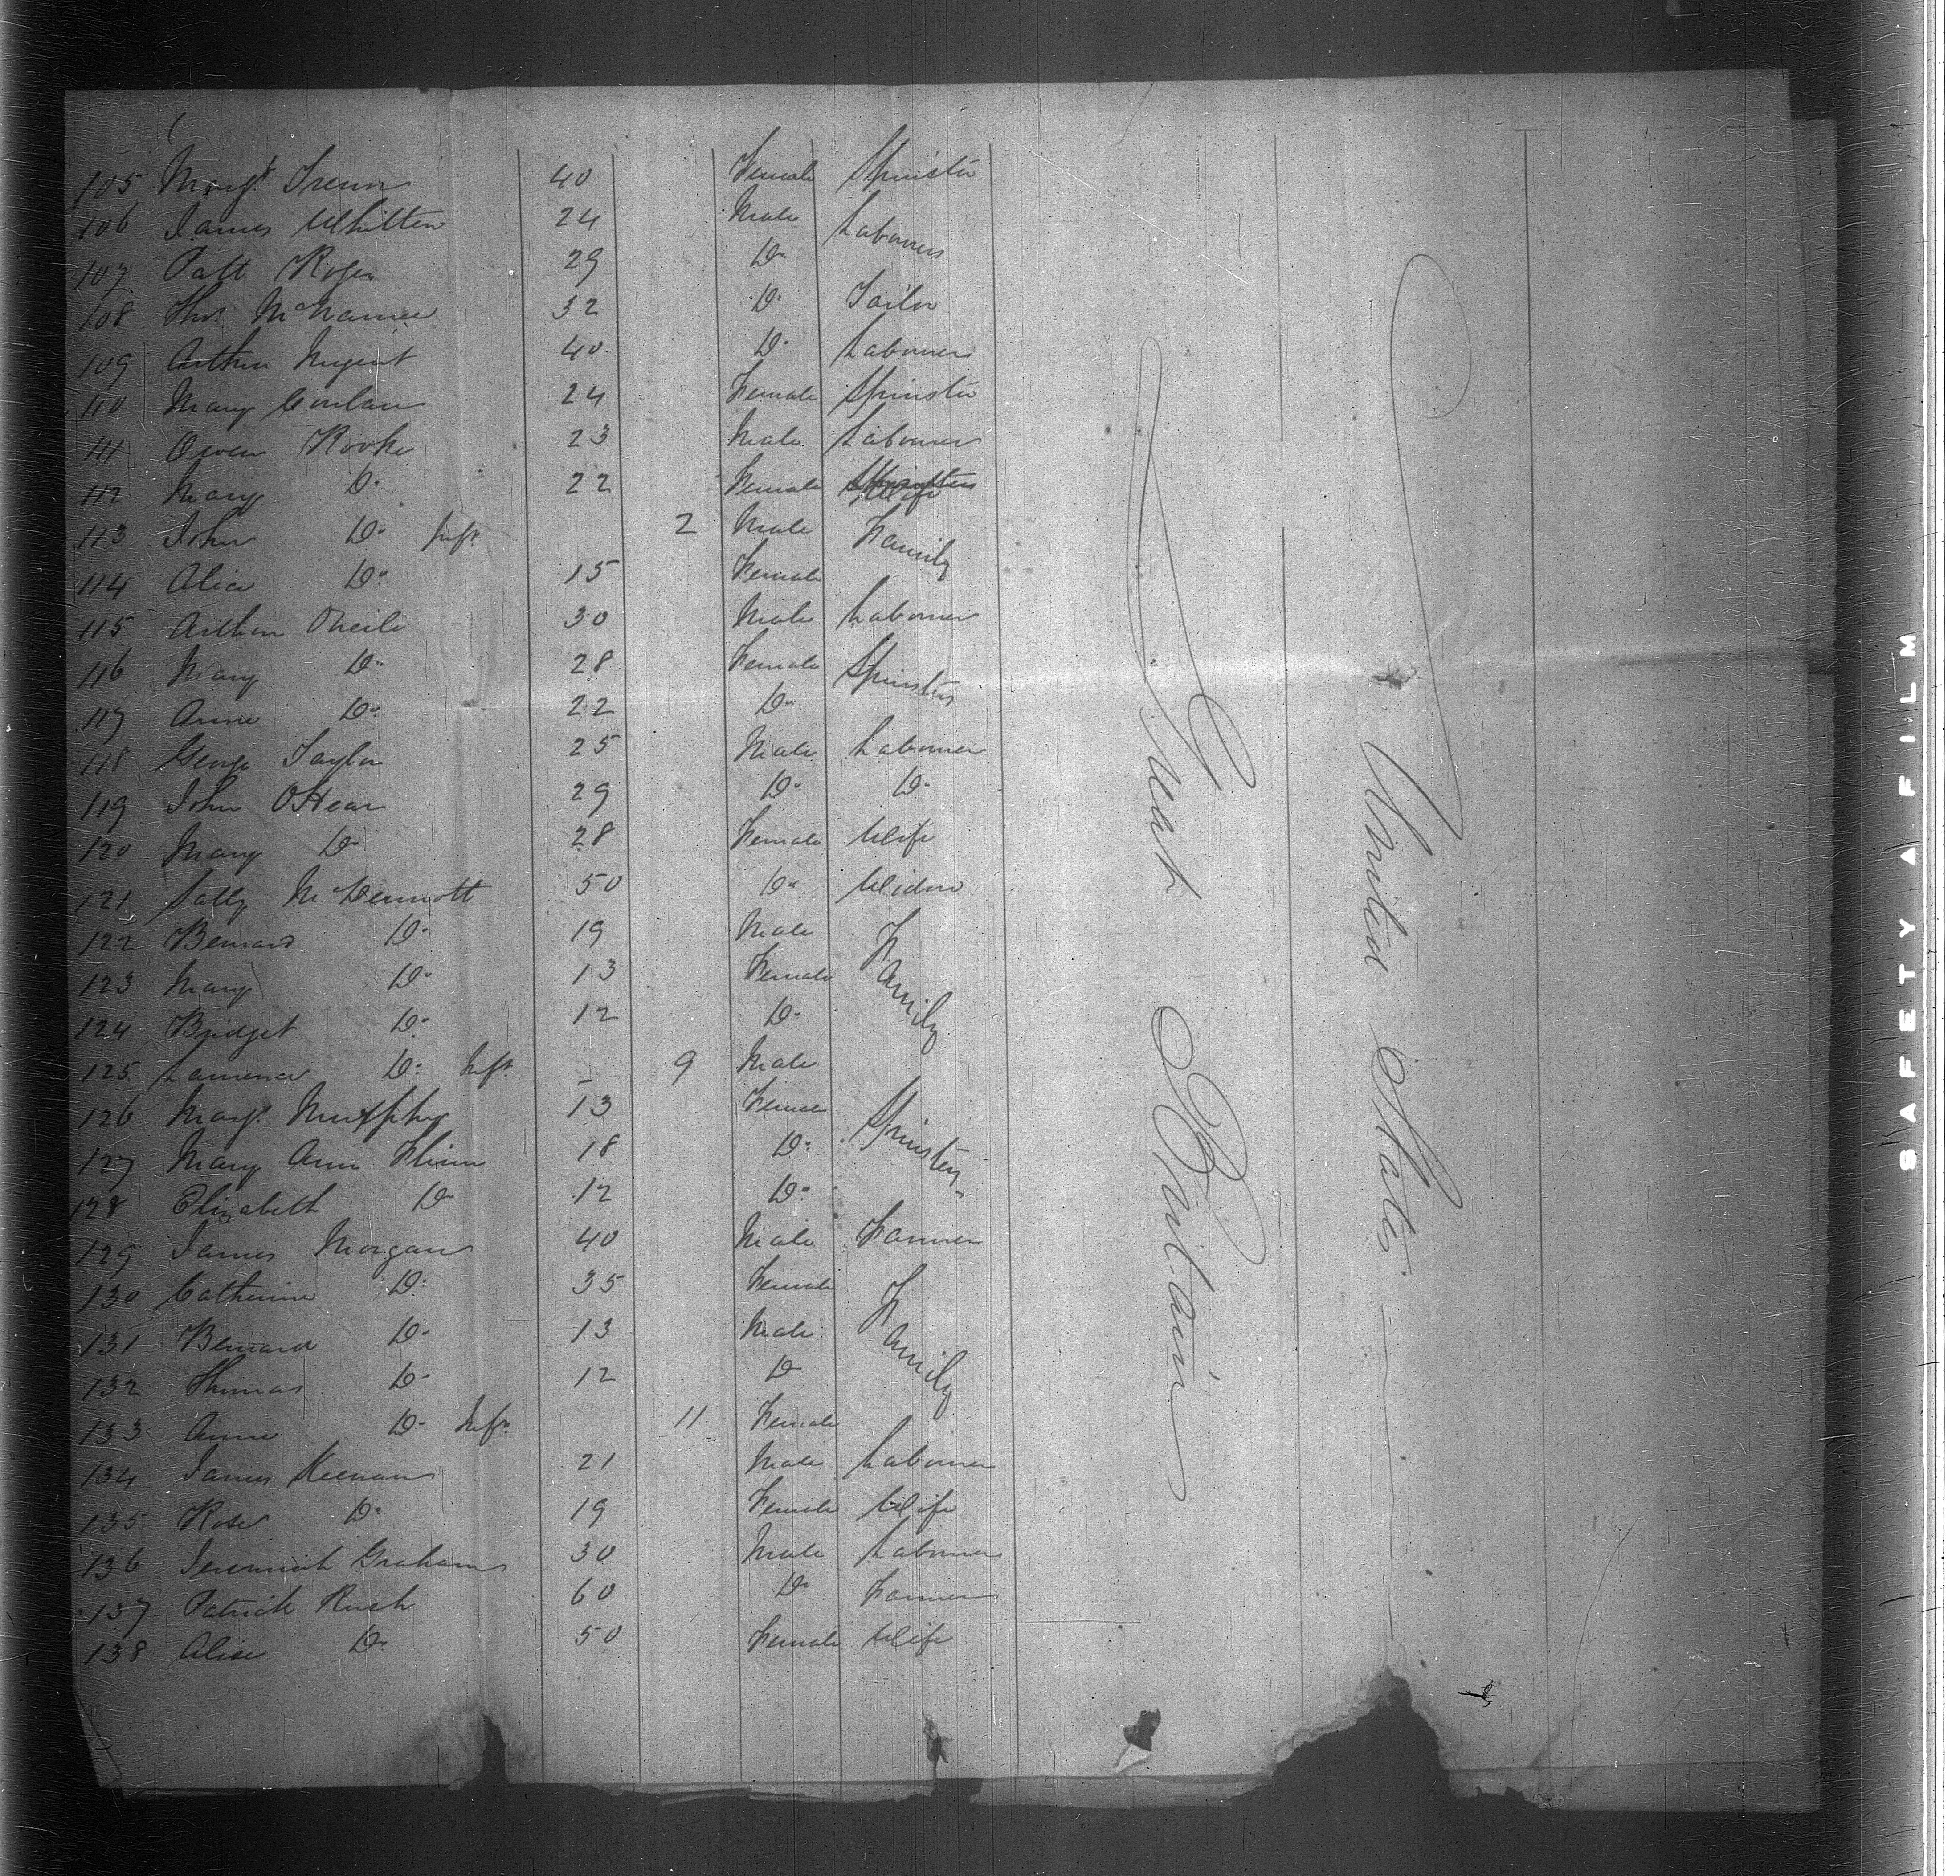 105 Margt. 40 Female Spinster
106 James Whitten 24 Male Labourers
107 Patt 29 Do.
108 Thos. McNamee 32 Do. Tailor
109 Arthur Nugent 40 Do. Labourer
110 Mary Conlan 24 Female Spinster
111 Owen Rooke 23 Male Labourer
112 Mary Do. 22 Female Wife
113 John Do. Inft. 2 Male Family
114 Alice Do. 15 Female
115 Arthur ONeile 30 Male Labourer
116 Mary Do. 28 Female Spinsters
117 Anne Do. 22 Do.
118 George Taylor 25 Male Labourer
119 John OHear 29 Do. Do.
120 Mary Do. 28 Female Wife
121 Sally McDermott 50 Do. Widow
122 Bernard Do. 19 Male Family
123 Mary Do. 13 Female
124 Bridget Do. 12 Do.
125 Laurence Do. Inft. 9 Male
126 Margt. Murphy 13 Female Spinsters
127 Mary Ann Flinn 18 Do.
128 Elizabeth Do 12 Do.
129 James Morgan 40 Male Farmer
130 Catherine Do. 35 Female Family
131 Bernard Do. 13 Male
132 Thomas Do. 12 Do
133 Anne Do. Inft. 11 Female
134 James Keenan 21 Male Labourer
135 Rose Do. 19 Female Wife
136 Jeremiah Graham 30 Male Labourer
137 Patrick Rush 60 Do Farmer
138 Alice Do. 50 Female Wife
Great Britain
United States
SAFETY A FILM